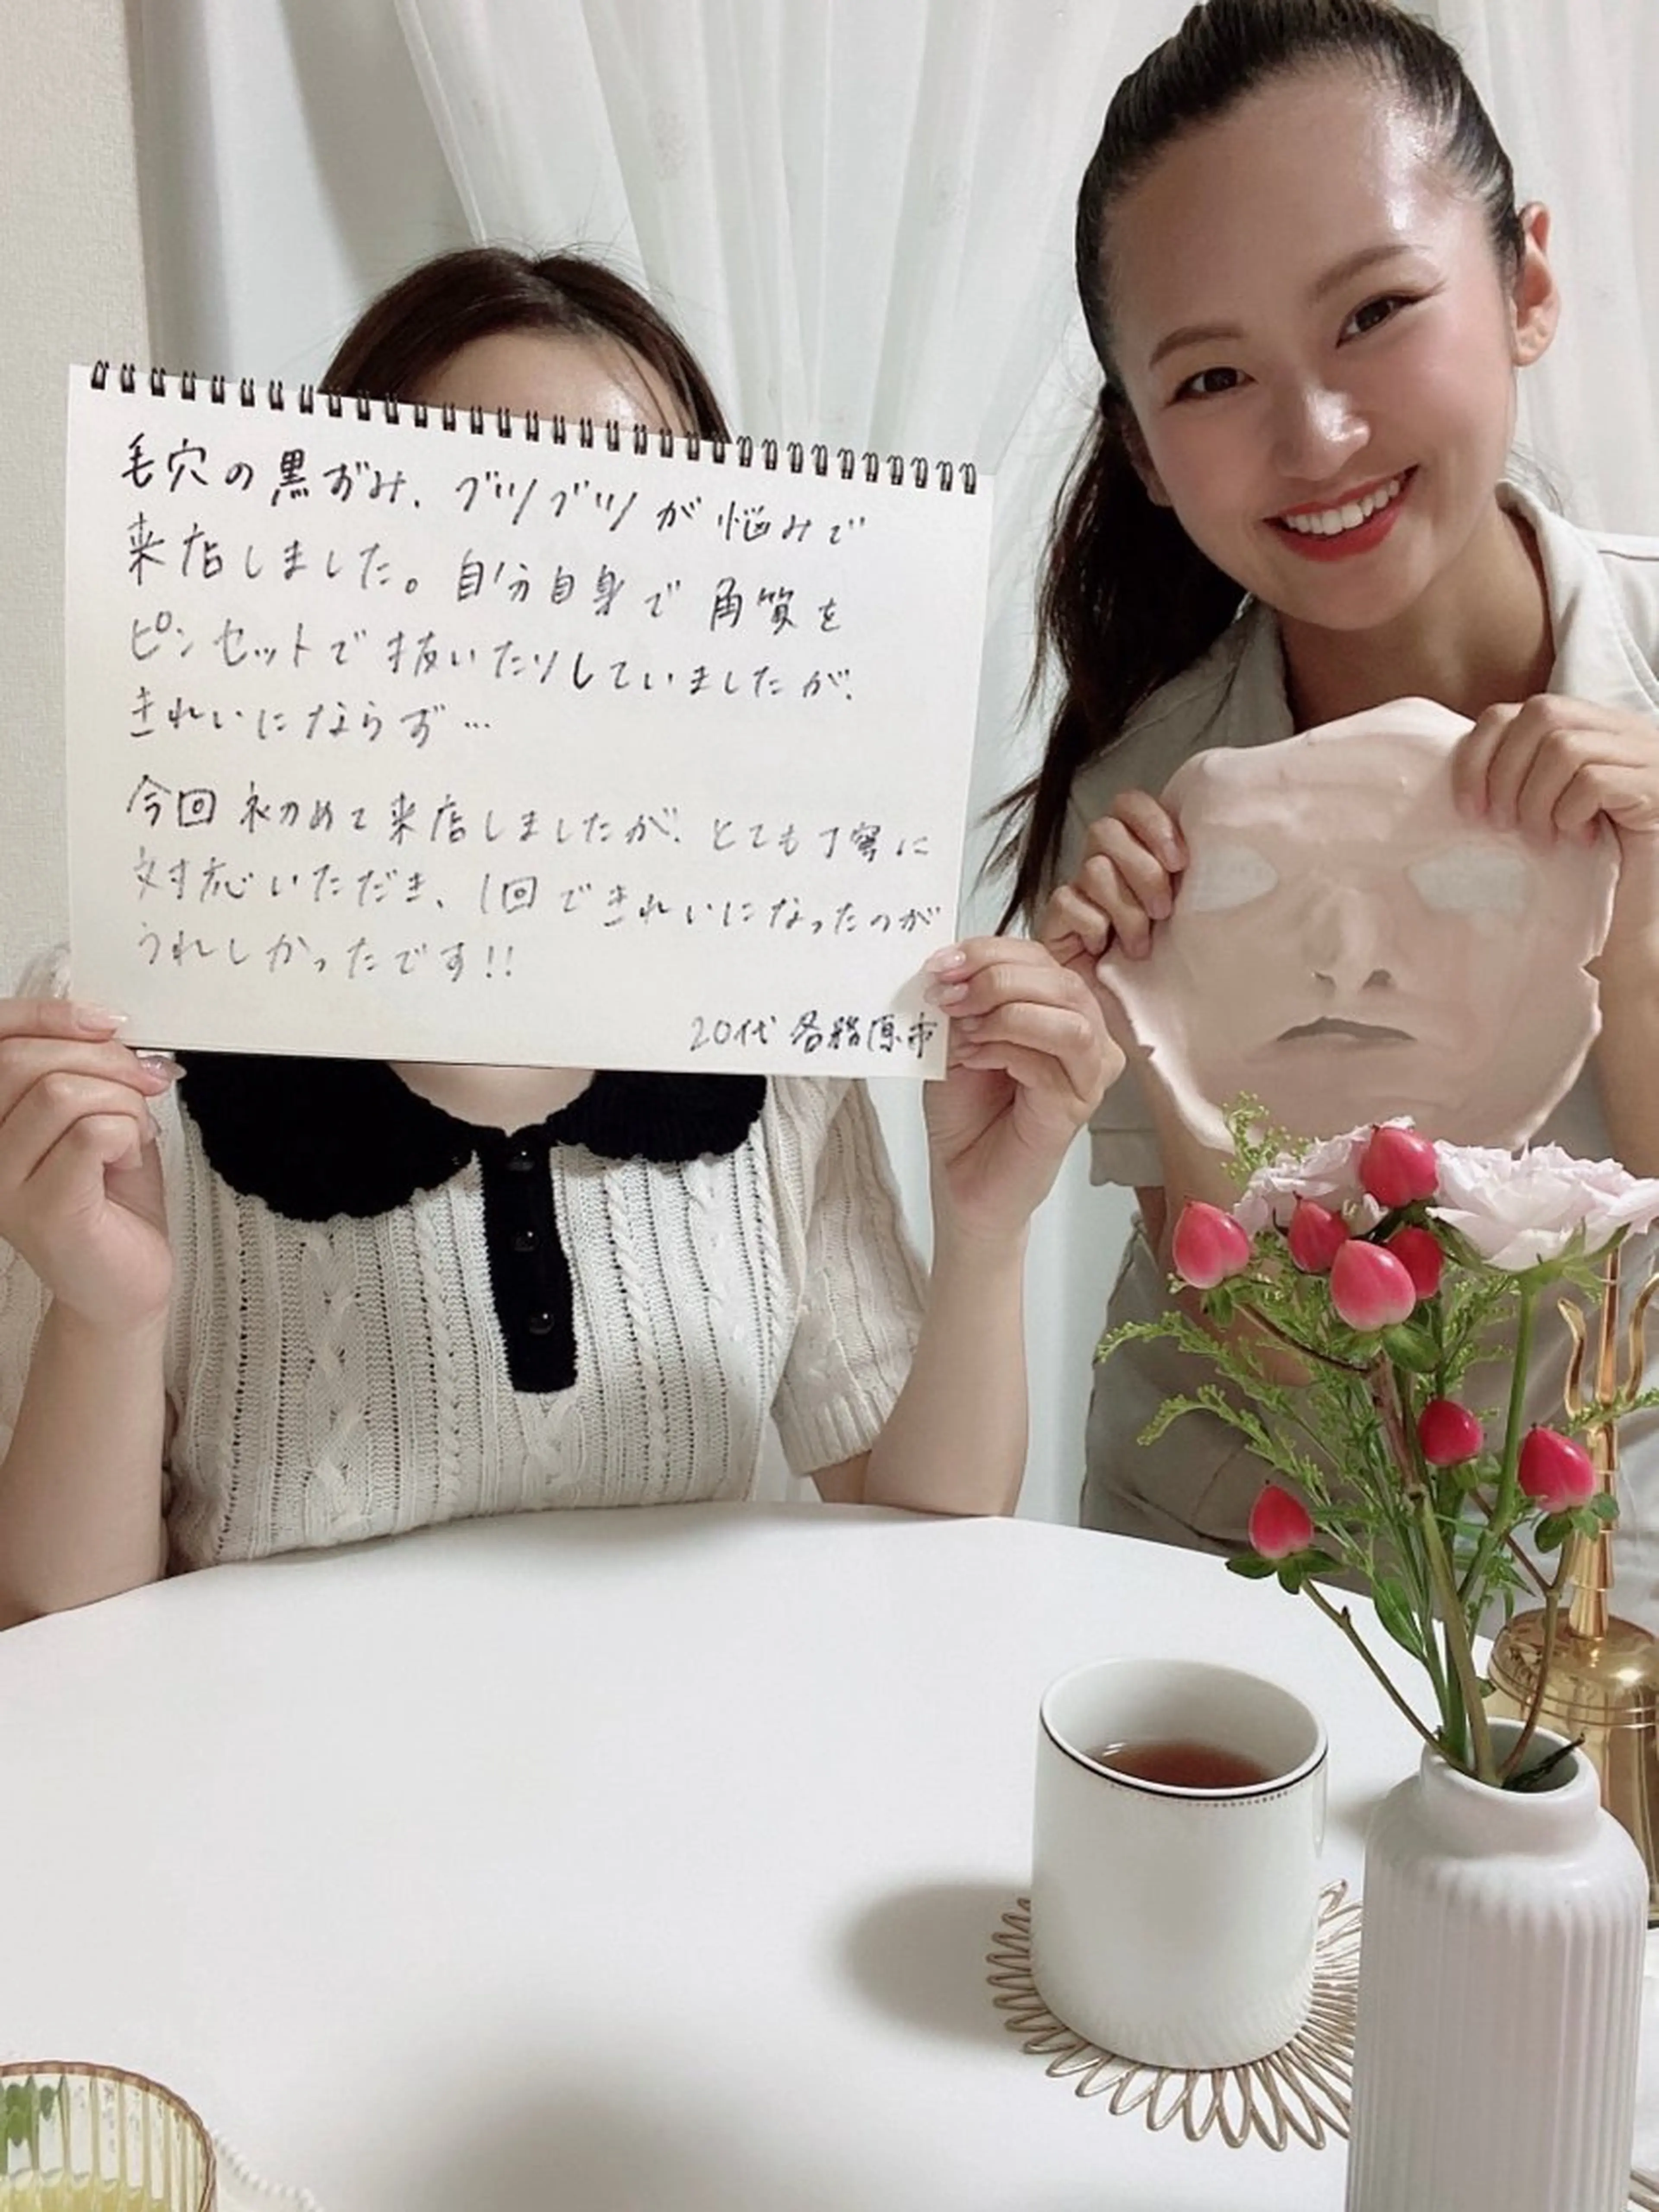 毛穴の黒ずみ、ブツブツが悩みで
来店しました。自分自身で角質を
ピンセットで抜いたりしていましたが、
きれいにならず…
今回初めて来店しましたが、とても丁寧に
対応いただき、1回できれいになったのが
うれしかったです!!
20代 各務原市